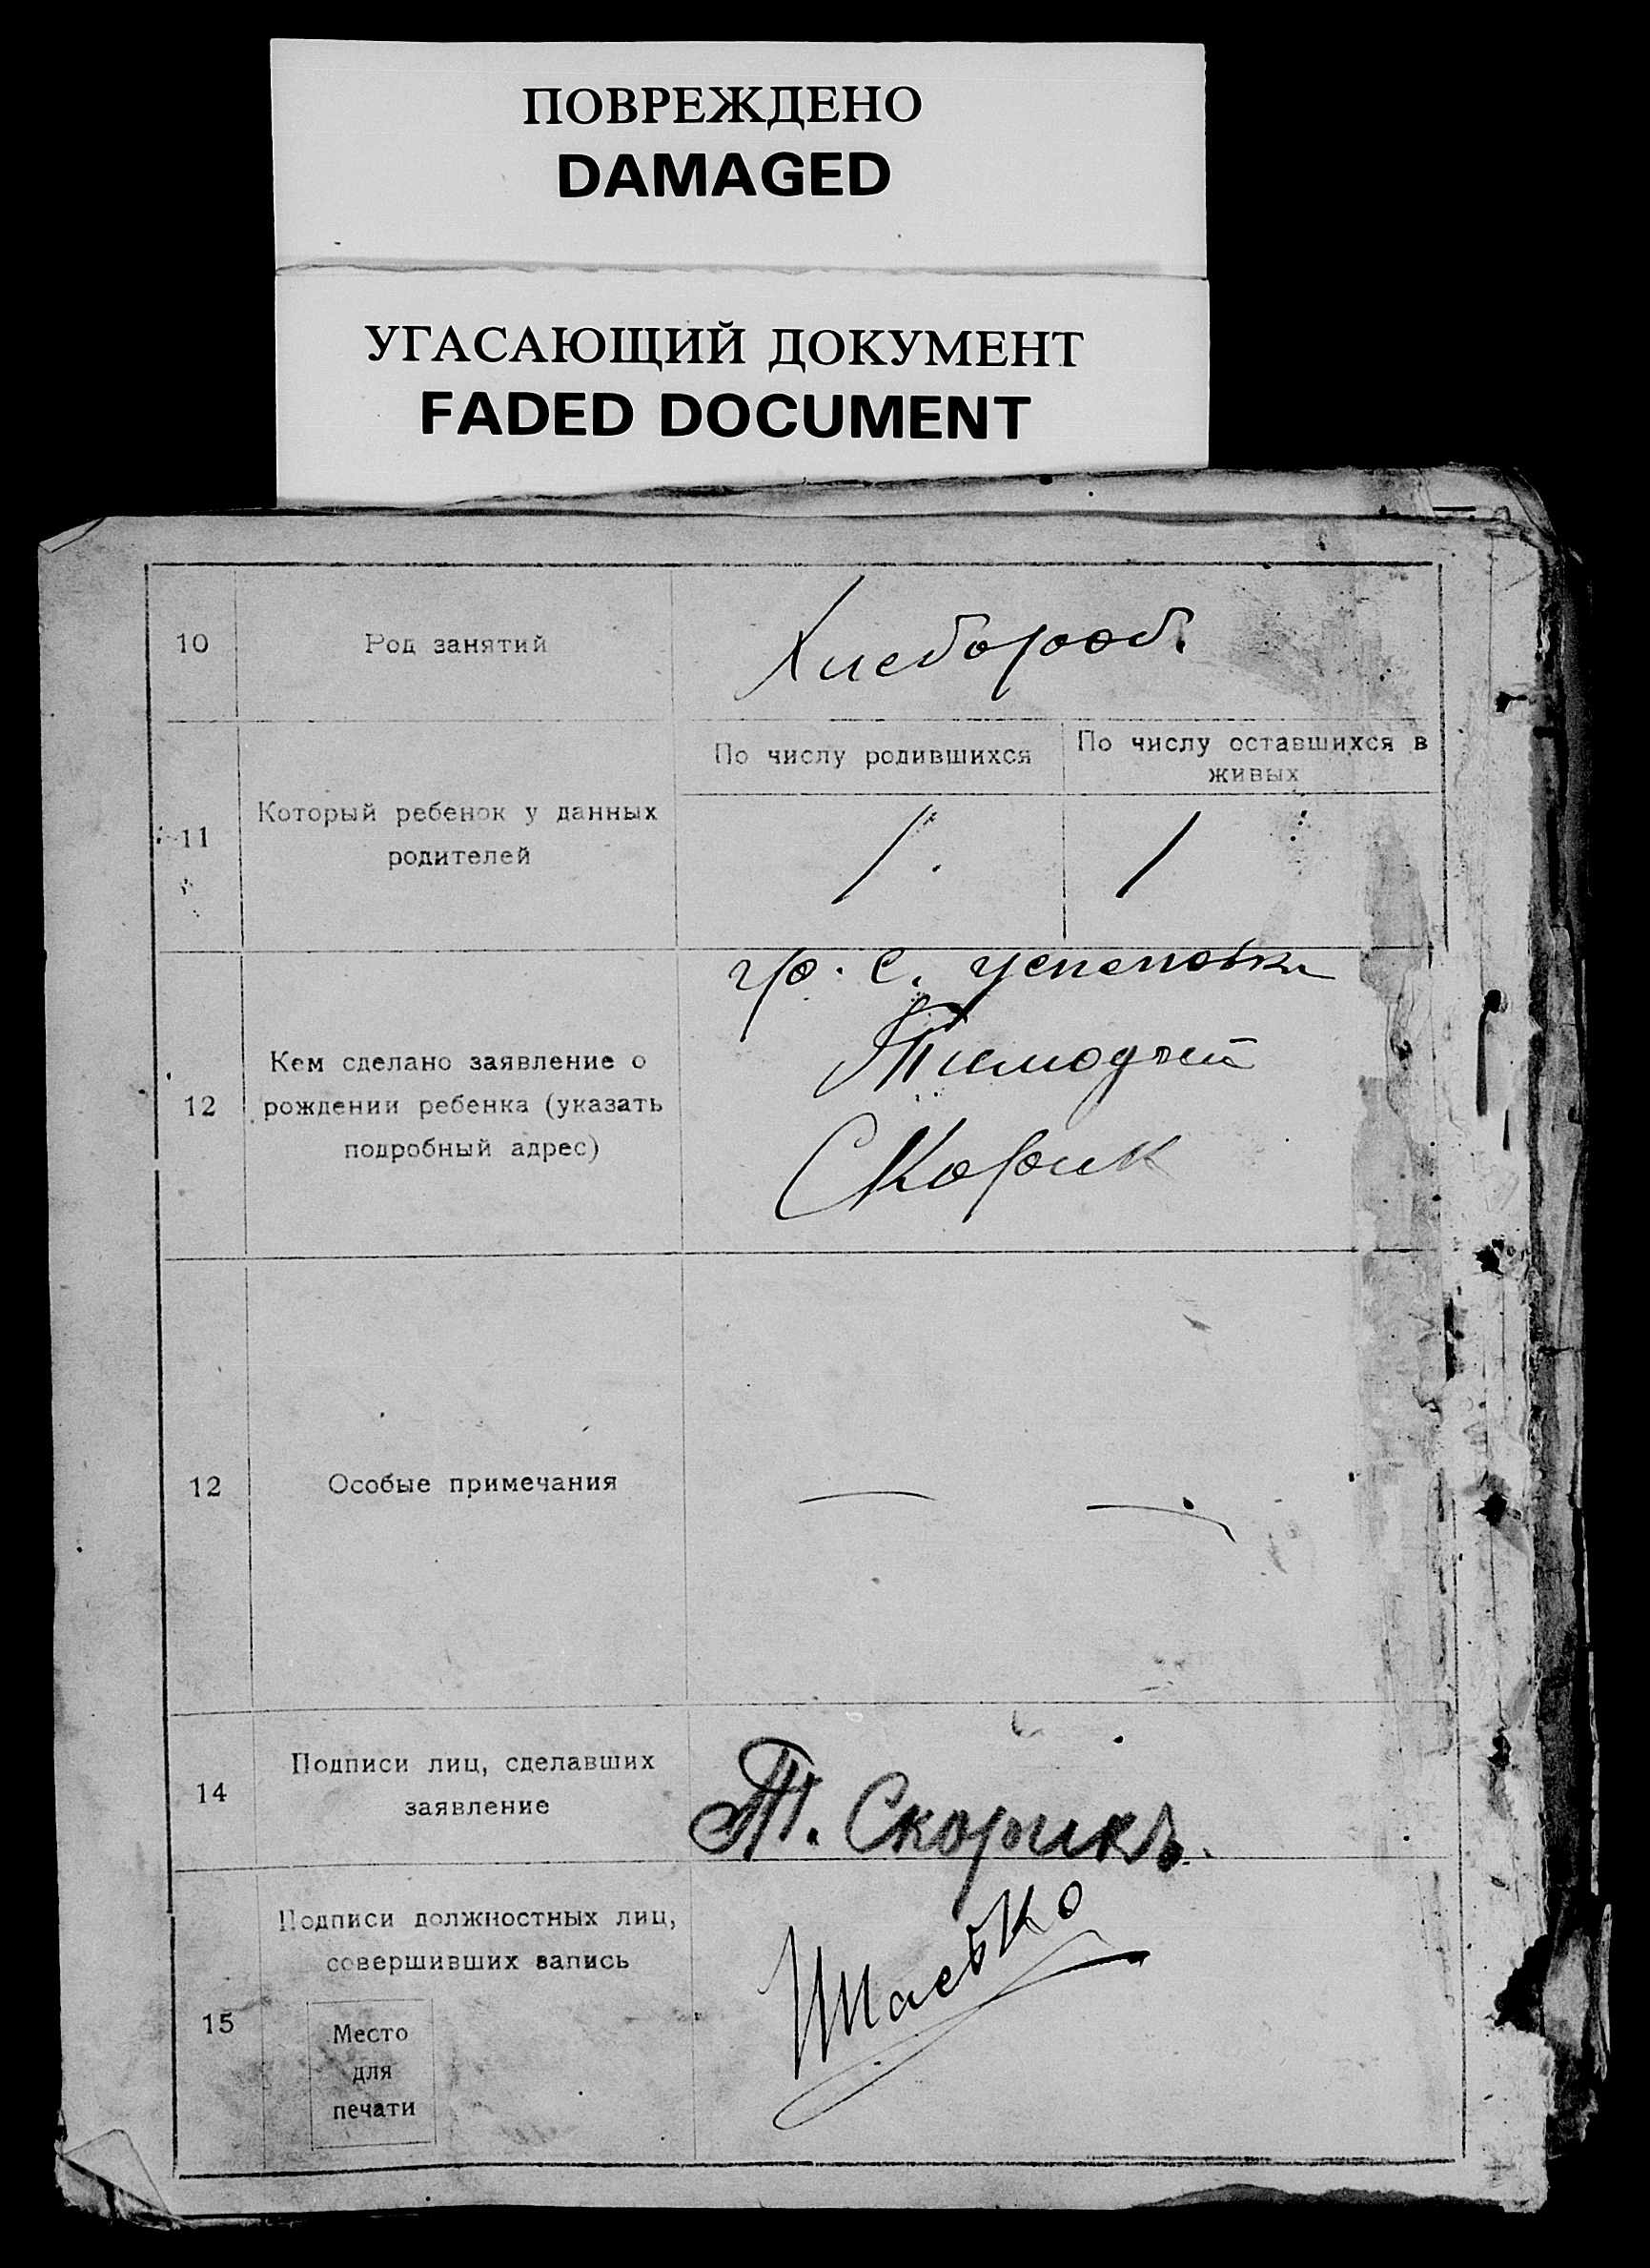 ПОВРЕЖДЕНО
DAMAGED
УГАСАЮЩИЙ ДОКУМЕНТ
FADED DOCUMENT
10 Род занятий Хлебороб.
По числу родившихся По числу оставшихся в живых
11 Который ребенок у данных родителей 1. 1
гр. с.
12 Кем сделано заявление о рождении ребенка (указать подробный адрес)
Тимофей
Скорик
12 Особые примечания — —
14 Подписи лиц, сделавших заявление Т. Скорикъ.
15 Подписи должностных лиц, совершивших запись
Место
для
печати